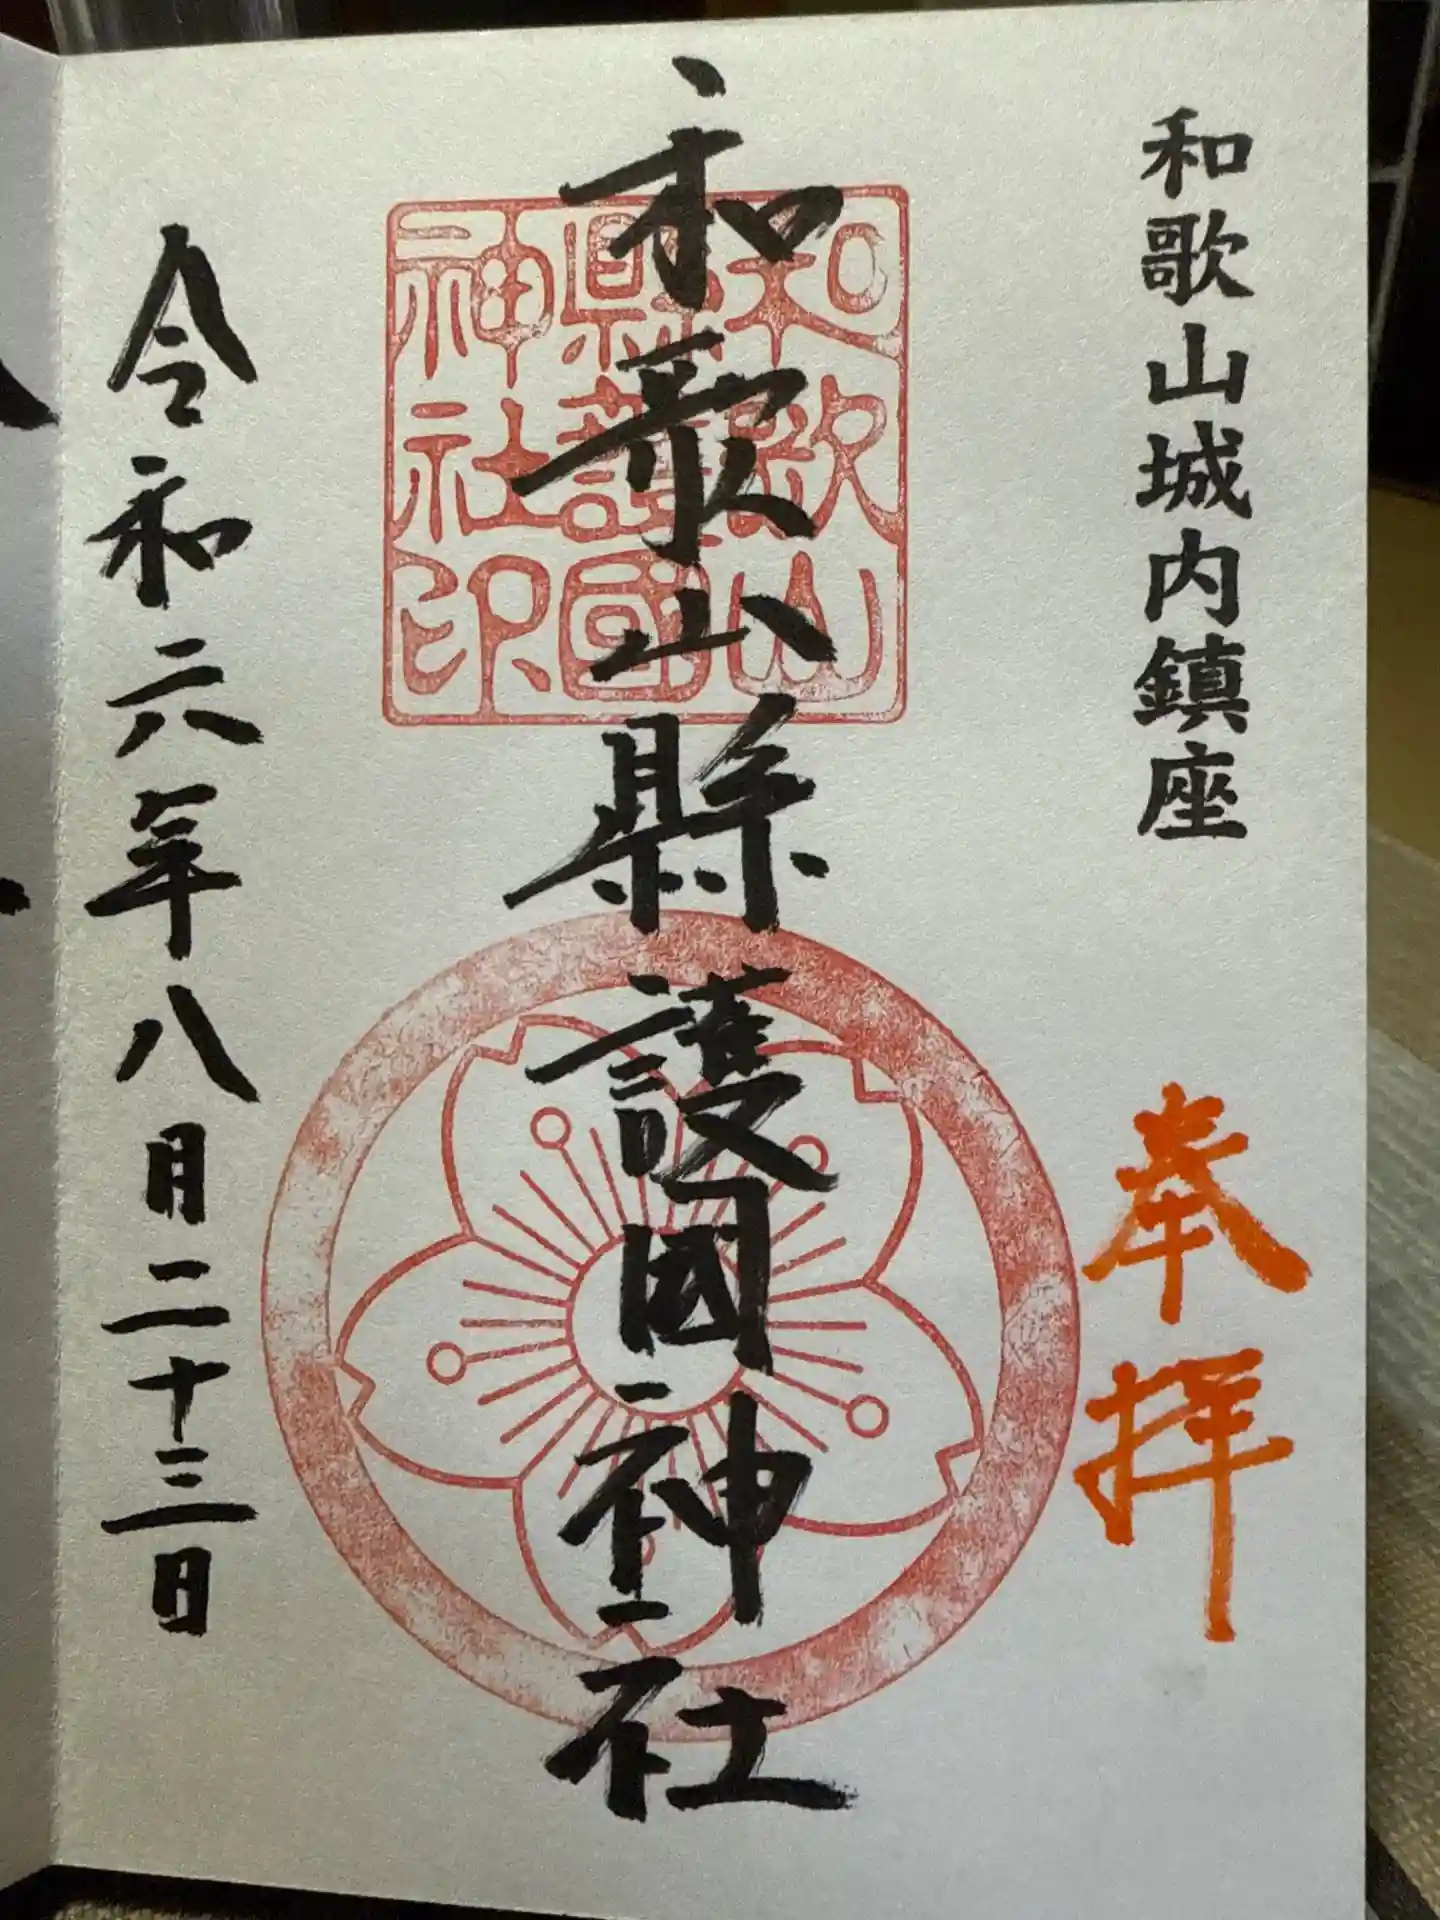 和歌山城内鎮座
奉拝
和歌山縣護國神社
和歌山
縣護國
神社印
令和六年八月二十三日